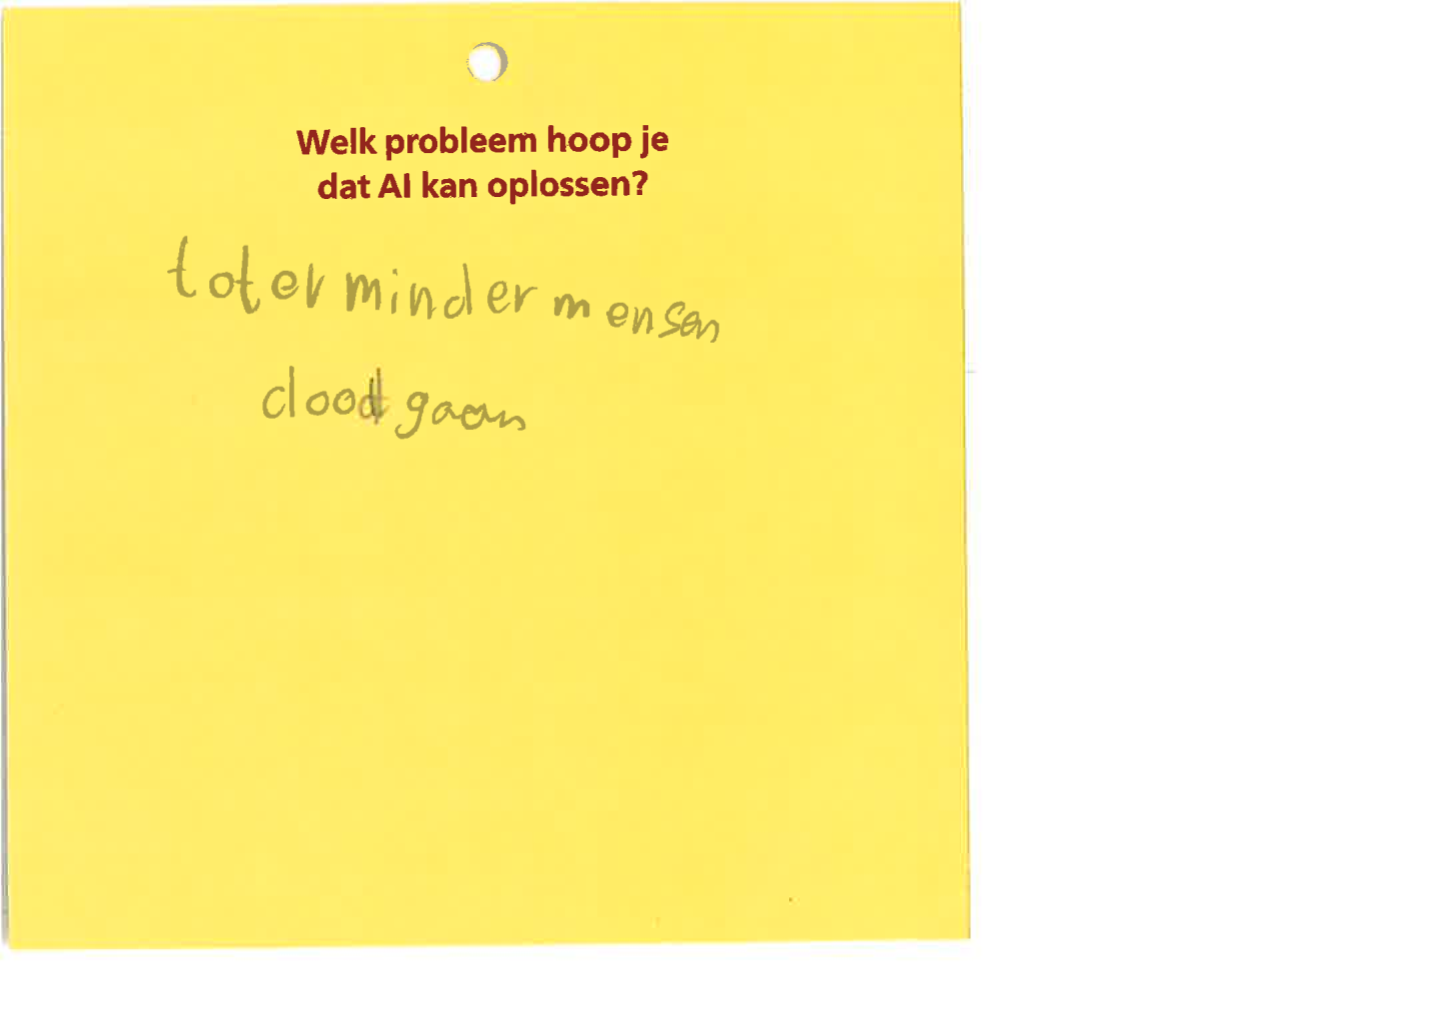 Welk probleem hoop je
dat AI kan oplossen?
tot er minder mensen
dood gaan